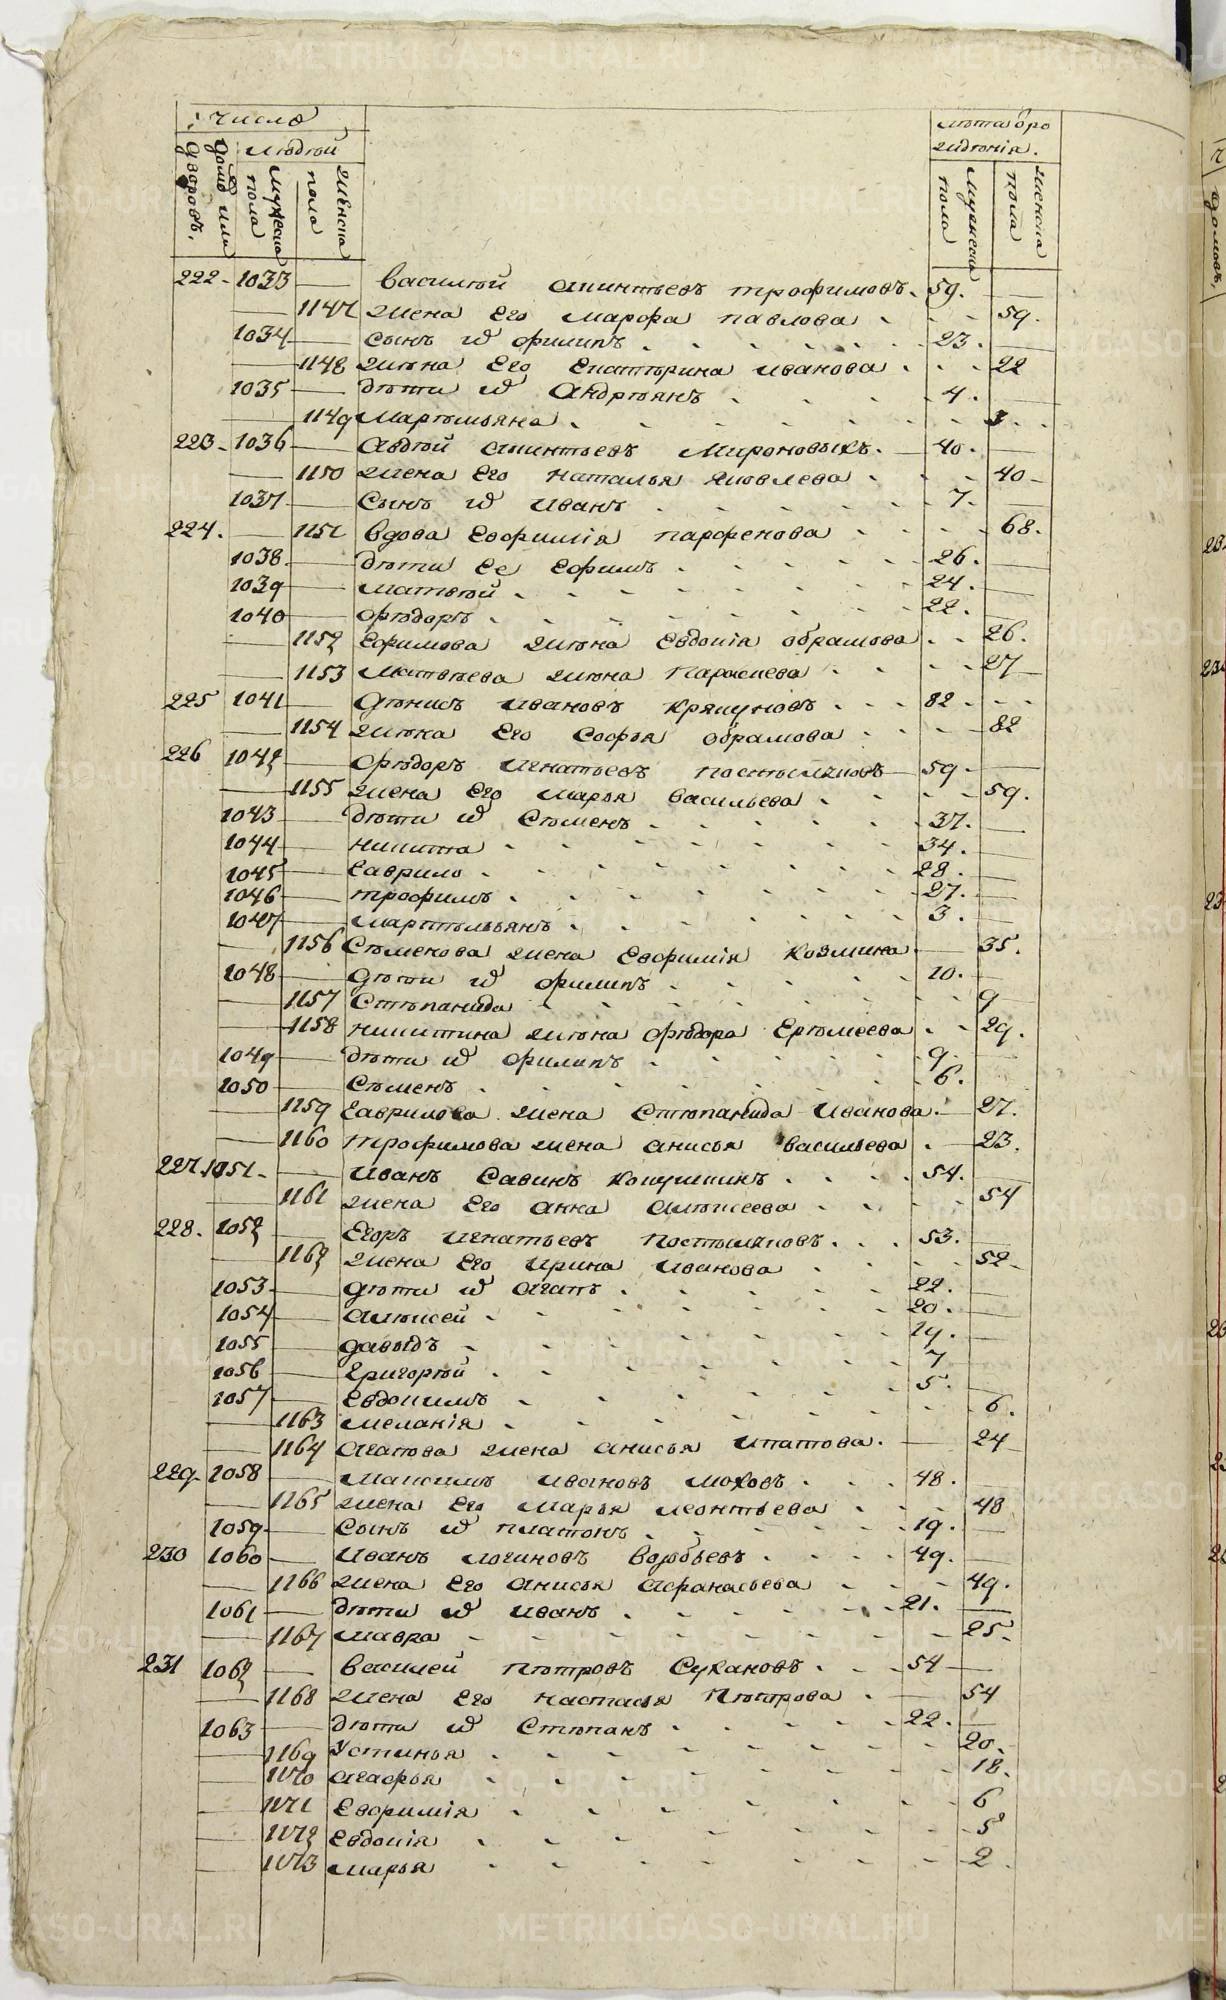 METRIKI.GASO-URAL.RU
число
людей
лѣта оро
ждѣнія.
дворовъ.
домъ или
мужеска пола
женска пола
мужеска пола
женска пола
222 - 1033 — василей акинтьевъ трофимовъ. 59. —
— 1147 жена Его марфа павлова - - - 59.
1034 — сынъ и филипъ . - - - 23. —
— 1148 жѣна Его Екатѣрина иванова - - - 22
1035 — дѣти и Андрѣянъ - - - 4. —
— 1149 Мартѣмьяна - - - 3.
223 - 1036 — Авдѣй акинтьевъ Мироновыхъ. — 40. —
— 1150 жена Его наталья яковлева - - - 40 -
1037 — Сынъ и иванъ - - - 7. —
224. — 1151 вдова Евфимія парфенова - - - 68.
1038. — дѣти Ее Ефимъ - - - 26. —
1039 — матвѣй - - - 24. —
1040 — фѣдоръ - - - 22. —
— 1152 Ефимова жѣна Евдокія обрамова - - 26.
— 1153 Матвѣева жѣна Параскева - - - 27
225 1041 — Дѣнисъ ивановъ крякуновъ - - - 82 - -
— 1154 жѣна Его Софья обрамова - - - 82
226 1042 — Фѣдоръ игнатьевъ постыляковъ 59 - —
— 1155 жена Его марья васильева - - - 59.
1043 — дѣти и Сѣменъ - - - 37. —
1044 — никита - - - 34. —
1045 — Гаврило - - - 28. —
1046 — трофимъ - - - 27. —
1047 — мартѣмьянъ - - - 3. —
— 1156 Сѣменова жена Евфимія козмина — 35.
1048 — дѣти и филипъ - - - 10. —
— 1157 Стѣпанида - - - 9
— 1158 никитина жѣна фѣдора Ерѣмеева - - 29.
1049 — дѣти и филипъ - - - 9. —
1050 — Сѣменъ - - - 6. —
— 1159 Гаврилова жена Стѣпанида иванова. — 27.
— 1160 трофимова жена анисья васильева - — 23.
227. 1051 - — иванъ Савинъ кокушкинъ - - - 54. —
— 1161 жена Его анна алѣксеева - - - 54
228. 1052 — Егоръ игнатьевъ постыляковъ. - - 53. —
— 1162 жена Его ирина иванова - - - 52 -
1053 — дѣти и агапъ - - - 22. —
1054 — алѣксей - - - 20. —
1055 — давыдъ - - - 14. —
1056 — Григорѣй - - - 7 —
1057 — Евдокимъ - - - 5. —
— 1163 меланія - - - 6.
— 1164 агапова жена анисья ипатова. — 24
229 1058 — максимъ ивановъ моховъ - - 48. —
— 1165 жена Его марья леонтьева - - - 48
1059 — сынъ и платонъ - - - 19. —
230 1060 — иванъ логиновъ воробьевъ - - - 49. —
— 1166 жена Его анисья афанасьева - - - 49.
1061 — дѣти и иванъ - - - 21. —
— 1167 мавра - - - 25 -
231 1062 — василей пѣтровъ Сухановъ - - - 54 —
— 1168 жена Его настасья пѣтрова - — 54
1063 — дѣти и Стѣпанъ - - - 22. —
— 1169 Устинья - - - 20.
— 1170 агафья - - - 18.
— 1171 Евфимія - - - 6
— 1172 Евдокія - - - 5
— 1173 марья - - - 2.